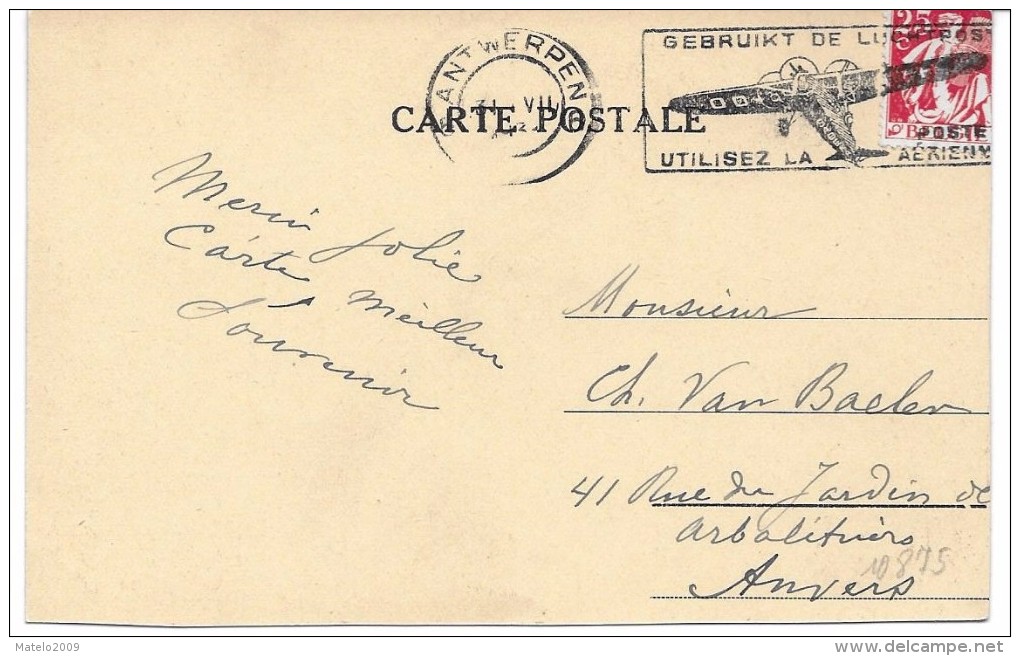 ANTWERPEN
VII
GEBRUIKT DE LUCHTPOST
UTILISEZ LA POSTE AÉRIENN
25
CARTE POSTALE
Merci Jolie
Carte, Meilleur
Souvenir
Monsieur
Ch. Van Baelen
41 Rue du Jardin de
Arbalétriers
Anvers
10875
Matelo2009
delcampe.net